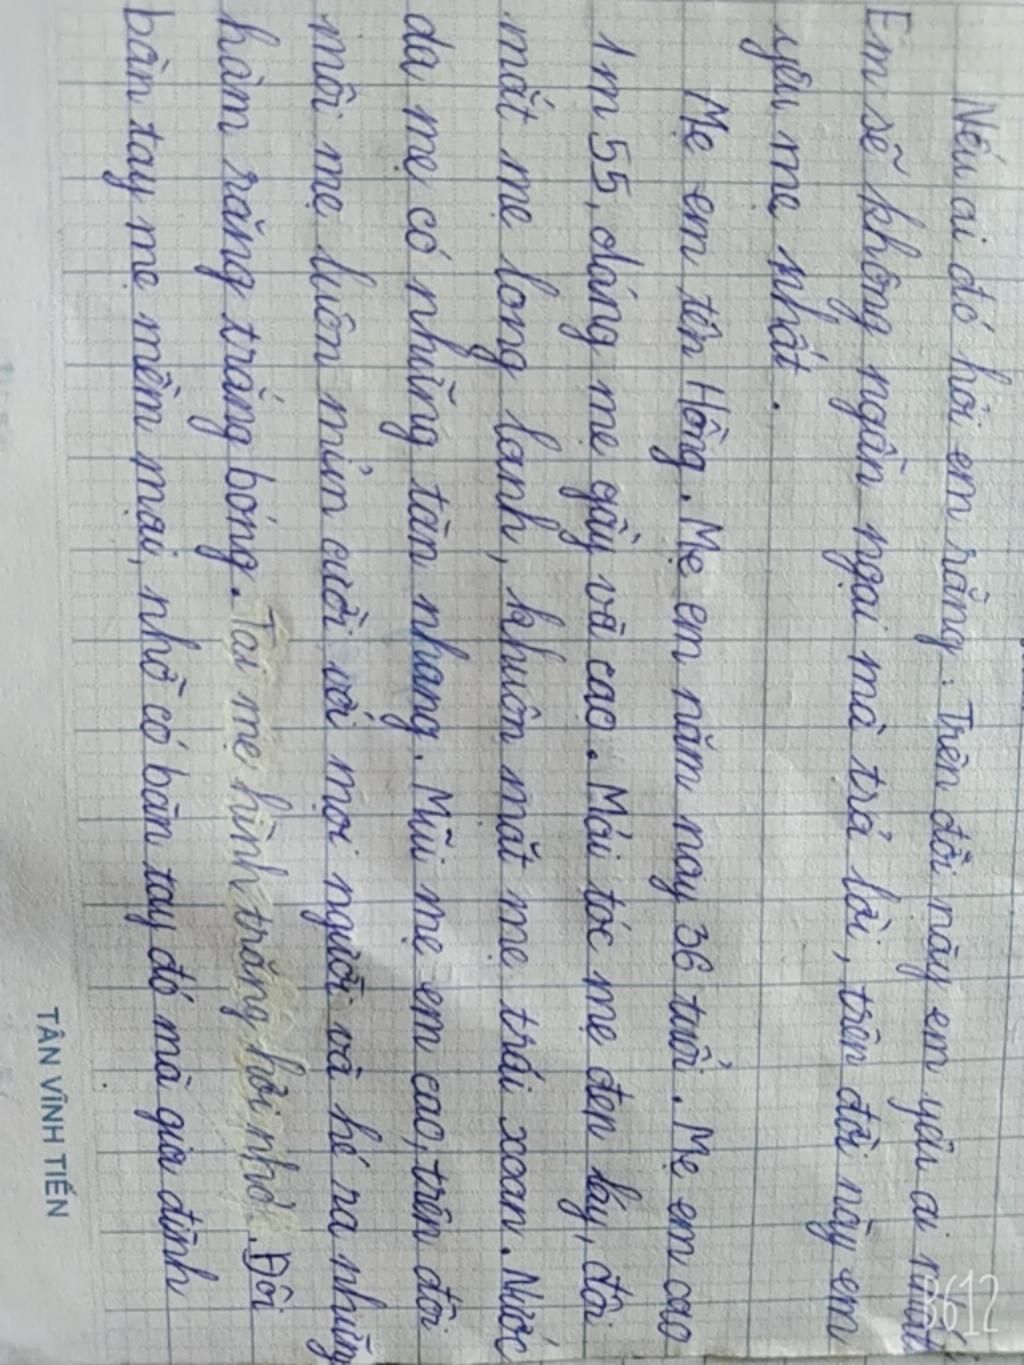 Nếu ai đó hỏi em rằng: Trên đời này em yêu ai nhất
Em sẽ không ngần ngại mà trả lời, trên đời này em
yêu mẹ nhất.
Mẹ em tên Hồng. Mẹ em năm nay 36 tuổi. Mẹ em cao
1m55, dáng mẹ gầy và cao. Mái tóc mẹ đen láy, đôi
mắt mẹ long lanh, khuôn mặt mẹ trái xoan. Nước
da mẹ có những tàn nhang. Mũi mẹ em cao, trên đôi
môi mẹ luôn mỉm cười với mọi người và hé ra những
hàm răng trắng bóng. Tai mẹ hình trăng hơi nhỏ. Đôi
bàn tay mẹ mềm mại, nhờ có bàn tay đó mà gia đình
TÂN VĨNH TIẾN
B612